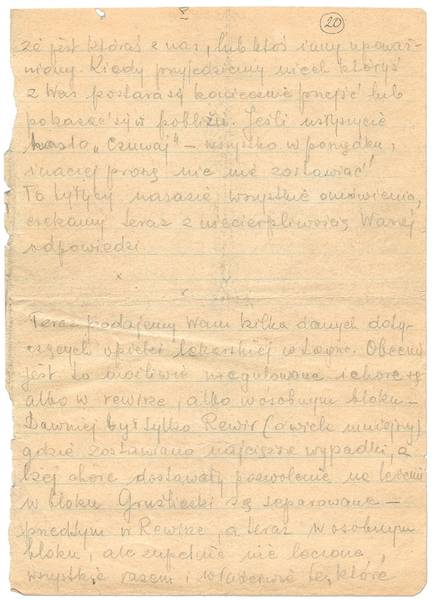 V
20
że jest któraś z nas, lub ktoś inny upoważ-
niony. Kiedy przyjedziemy niech któryś
z Was postara się koniecznie przejść lub
pokazać się w pobliżu. Jeśli usłyszycie
hasło „Czuwaj" – wszystko w porządku,
inaczej proszę nic nie zostawiać!
To byłyby nasze wszystkie omówienia,
czekamy teraz z niecierpliwością Waszej
odpowiedzi.
Teraz podajemy Wam kilka danych doty-
czących opieki lekarskiej w Lagrze. Obecnie
jest to możliwie uregulowane i chore są
albo w rewirze, albo w osobnym bloku –
Dawniej był tylko Rewir (o wiele mniejszy)
gdzie zostawiano najcięższe wypadki, a
lżej chore dostawały pozwolenie na leżenie
w bloku Gruźliczki są separowane –
przedtym w Rewirze, a teraz w osobnym
bloku, ale zupełnie nie leczone,
wszystkie razem i właściwie te, które